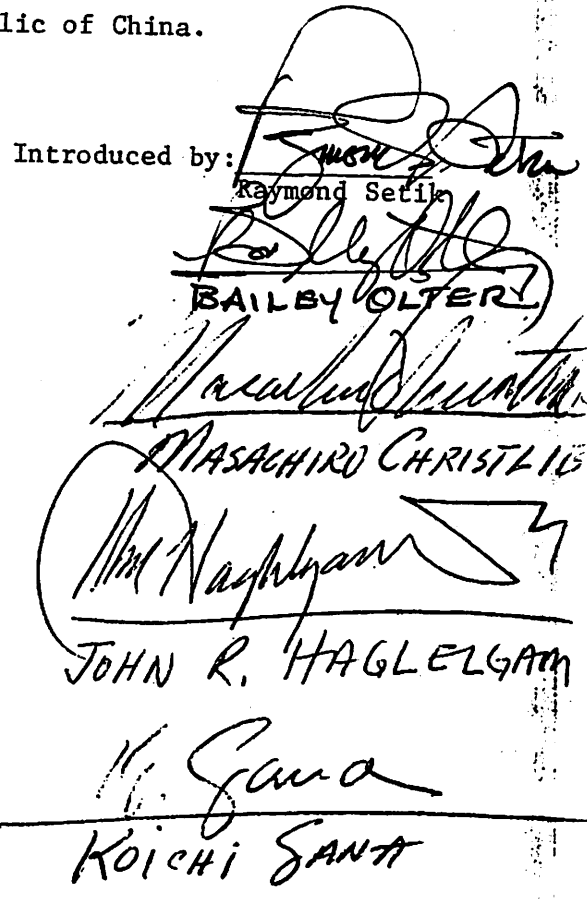 lic of China.
Introduced by:
Raymond Setik
BAILEY OLTER
MASACHIRO CHRISTLIB
JOHN R. HAGLELGAM
K. Sana
KOICHI SANA